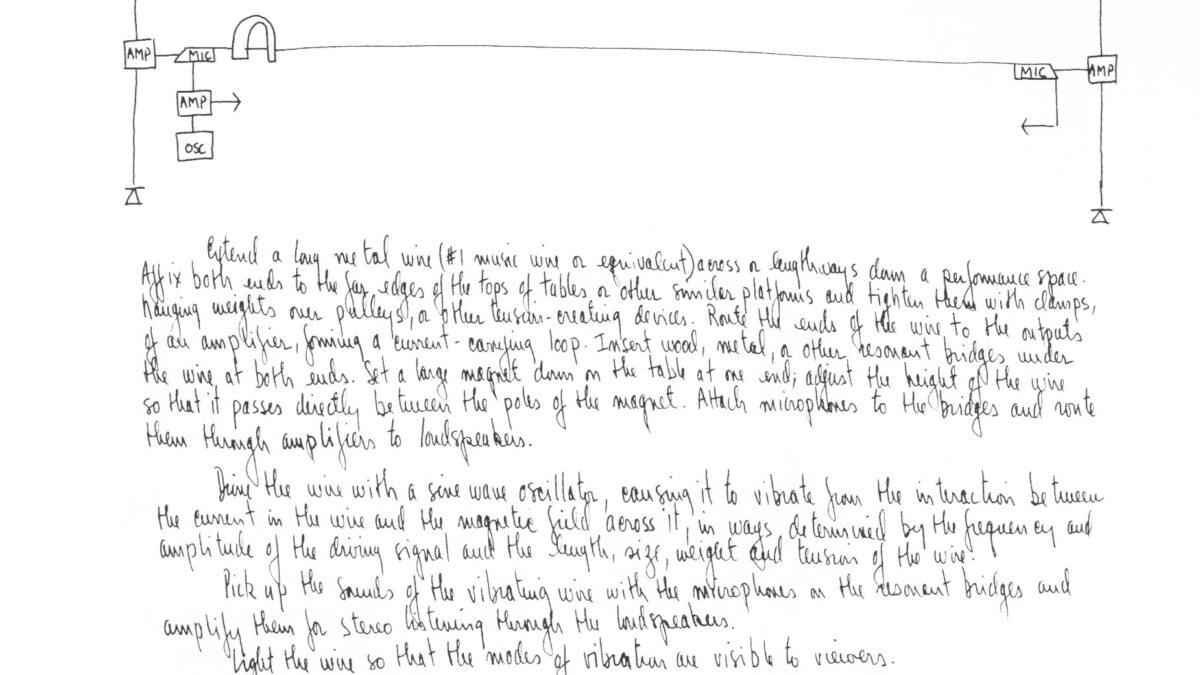 AMP
MIC
AMP
OSC
MIC
AMP
Extend a long metal wire (#1 music wire or equivalent) across or lengthways down a performance space.
Affix both ends to the far edges of the tops of tables or other similar platforms and tighten them with clamps,
hanging weights over pulleys, or other tension-creating devices. Route the ends of the wire to the outputs
of an amplifier, forming a current-carrying loop. Insert wood, metal, or other resonant bridges under
the wire at both ends. Set a large magnet down on the table at one end; adjust the height of the wire
so that it passes directly between the poles of the magnet. Attach microphones to the bridges and route
them through amplifiers to loudspeakers.
Drive the wire with a sine wave oscillator, causing it to vibrate from the interaction between
the current in the wire and the magnetic field across it, in ways determined by the frequency and
amplitude of the driving signal and the length, size, weight and tension of the wire.
Pick up the sounds of the vibrating wire with the microphones on the resonant bridges and
amplify them for stereo listening through the loudspeakers.
Light the wire so that the modes of vibration are visible to viewers.